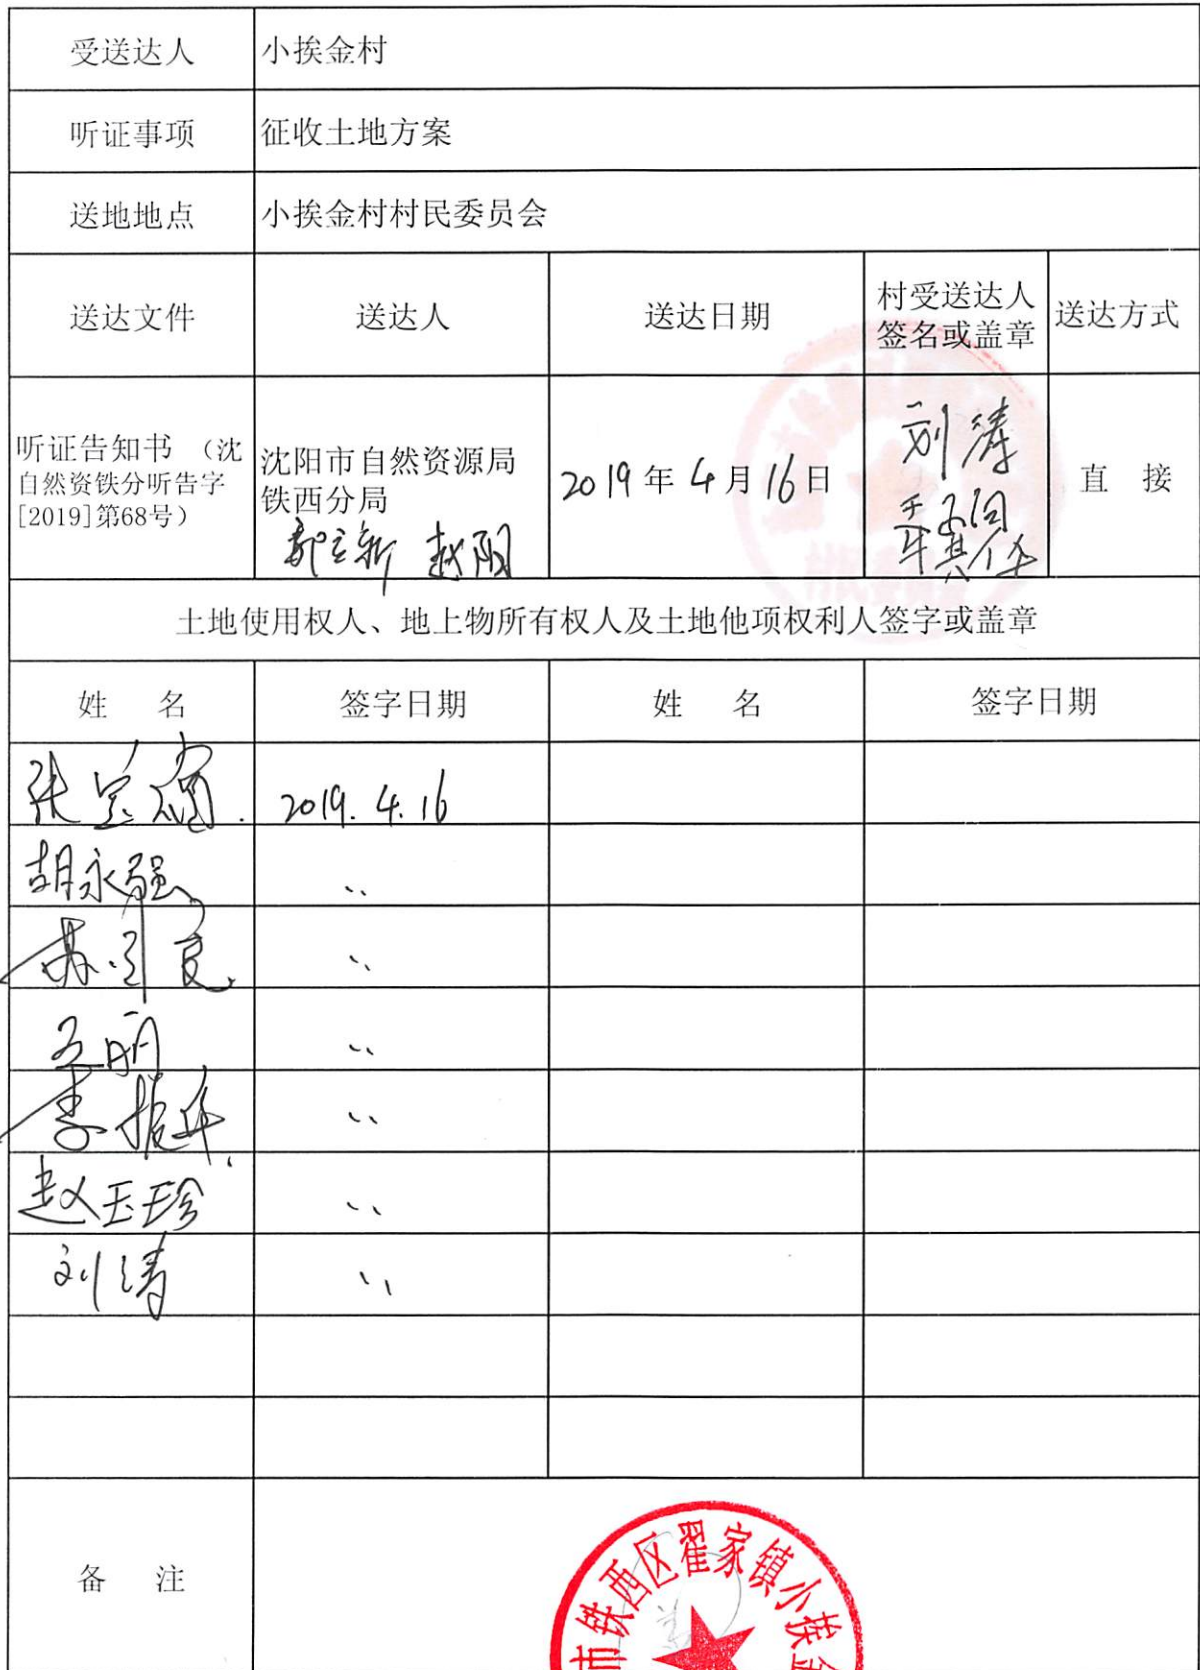 受送达人 小挨金村
听证事项 征收土地方案
送地地点 小挨金村村民委员会
送达文件 送达人 送达日期 村受送达人 送达方式
签名或盖章
听证告知书 （沈
自然资铁分听告字
[2019]第68号）
沈阳市自然资源局
铁西分局
郭立新 赵阳
2019年4月16日
刘涛
直 接
土地使用权人、地上物所有权人及土地他项权利人签字或盖章
姓 名 签字日期 姓 名 签字日期
张 2019.4.16
胡永强 〃
苏 民 〃
丽 〃
李振华 〃
赵玉珍 〃
刘涛 〃
备 注
市铁西区翟家镇小挨金